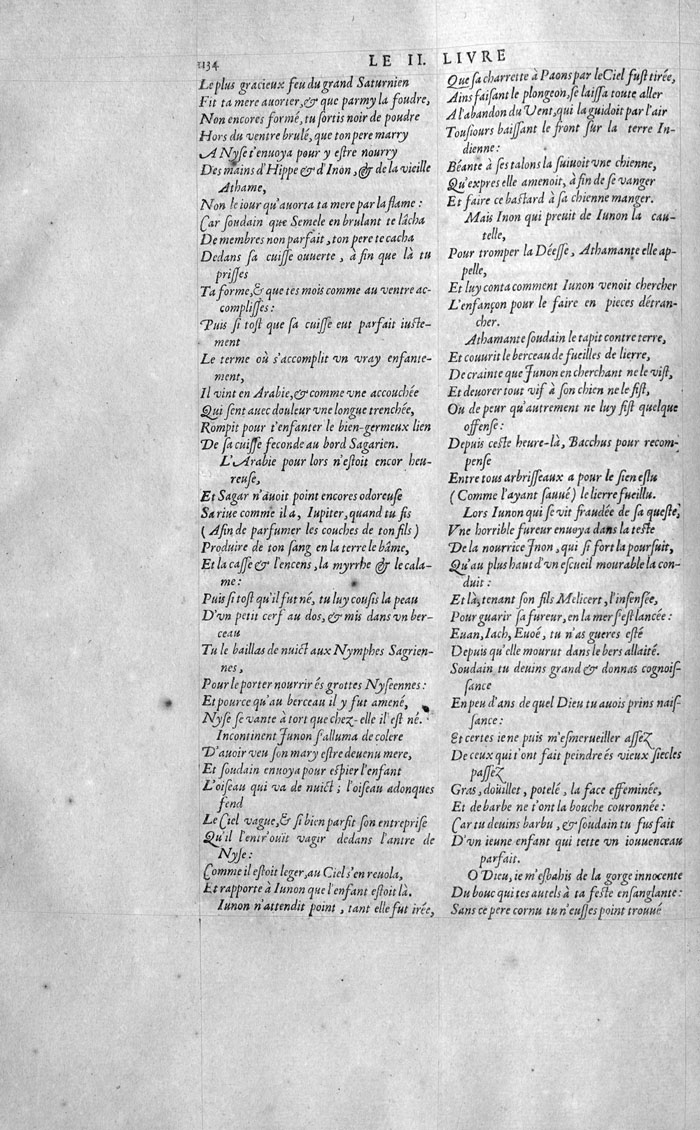 1134
LE II. LIVRE
Le plus gracieux feu du grand Saturnien
Fit ta mere auorter, & que parmy la foudre,
Non encores formé, tu sortis noir de poudre
Hors du ventre brulé, que ton pere marry
A Nyse t'enuoya pour y estre nourry
Des mains d'Hippe & d'Inon, & de la vieille
Athame,
Non le iour qu'auorta ta mere par la flame:
Car soudain que Semele en brulant te lâcha
De membres non parfait, ton pere te cacha
Dedans sa cuisse ouuerte, à fin que là tu
prisses
Ta forme, & que tes mois comme au ventre ac-
complisses:
Puis si tost que sa cuisse eut parfait iuste-
ment
Le terme où s'accomplit vn vray enfante-
ment,
Il vint en Arabie, & comme vne accouchée
Qui sent auec douleur vne longue trenchée,
Rompit pour t'enfanter le bien-germeux lien
De sa cuisse feconde au bord Sagarien.
L'Arabie pour lors n'estoit encor heu-
reuse,
Et Sagar n'auoit point encores odoreuse
Sa riue comme il a, Iupiter, quand tu fis
(Afin de parfumer les couches de ton fils)
Produire de ton sang en la terre le bâme,
Et la casse & l'encens, la myrrhe & le cala-
me:
Puis si tost qu'il fut né, tu luy cousis la peau
D'vn petit cerf au dos, & mis dans vn ber-
ceau
Tu le baillas de nuict aux Nymphes Sagrien-
nes,
Pour le porter nourrir és grottes Nyseennes:
Et pource qu'au berceau il y fut amené,
Nyse se vante à tort que chez-elle il est né.
Incontinent Junon s'alluma de colere
D'auoir veu son mary estre deuenu mere,
Et soudain enuoya pour espier l'enfant
L'oiseau qui va de nuict; l'oiseau adonques
fend
Le Ciel vague, & si bien parfit son entreprise
Qu'il l'entr'ouït vagir dedans l'antre de
Nyse:
Comme il estoit leger, au Ciel s'en reuola,
Et rapporte à Iunon que l'enfant estoit là.
Iunon n'attendit point, tant elle fut irée,
Que sa charrette à Paons par le Ciel fust tirée,
Ains faisant le plongeon, se laissa toute aller
A l'abandon du Vent, qui la guidoit par l'air
Tousiours baissant le front sur la terre In-
dienne:
Béante à ses talons la suiuoit vne chienne,
Qu'expres elle amenoit, à fin de se vanger
Et faire ce bastard à sa chienne manger.
Mais Inon qui preuit de Iunon la cau-
telle,
Pour tromper la Déesse, Athamante elle ap-
pelle,
Et luy conta comment Iunon venoit chercher
L'enfançon pour le faire en pieces détran-
cher.
Athamante soudain le tapit contre terre,
Et couurit le berceau de fueilles de lierre,
De crainte que Junon en cherchant ne le vist,
Et deuorer tout vif à son chien ne le fist,
Ou de peur qu'autrement ne luy fist quelque
offense:
Depuis ceste heure-là, Bacchus pour recom-
pense
Entre tous arbrisseaux a pour le sien eslu
(Comme l'ayant sauué) le lierre fueillu.
Lors Iunon qui se vit fraudée de sa queste,
Vne horrible fureur enuoya dans la teste
De la nourrice Jnon, qui si fort la poursuit,
Qu'au plus haut d'vn escueil mourable la con-
duit:
Et là, tenant son fils Melicert, l'insensée,
Pour guarir sa fureur, en la mer s'est lancée:
Euan, Iach, Euoé, tu n'as gueres esté
Depuis qu'elle mourut dans le bers allaité.
Soudain tu deuins grand & donnas cognois-
sance
En peu d'ans de quel Dieu tu auois prins nais-
sance:
Et certes ie ne puis m'esmerueiller assez
De ceux qui t'ont fait peindre és vieux siecles
passez
Gras, doüillet, potelé, la face effeminée,
Et de barbe ne t'ont la bouche couronnée:
Car tu deuins barbu, & soudain tu fus fait
D'vn ieune enfant qui tette vn iouuenceau
parfait.
O Dieu, ie m'esbahis de la gorge innocente
Du bouc qui tes autels à ta feste ensanglante:
Sans ce pere cornu tu n'eusses point trouué